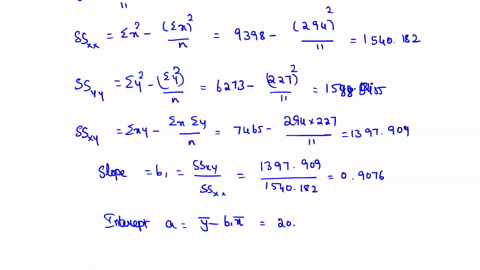 11
SSxx = Σx² − (Σx)²/n = 9398 − (294)²/11 = 1540.182
SSyy = Σy² − (Σy)²/n = 6273 − (227)²/11 =
SSxy = Σxy − Σx Σy/n = 7465 − 294×227/11 = 1397.909
Slope = b₁ = SSxy/SSxx = 1397.909/1540.182 = 0.9076
Intercept a = y̅ − b₁x̅ = 20.